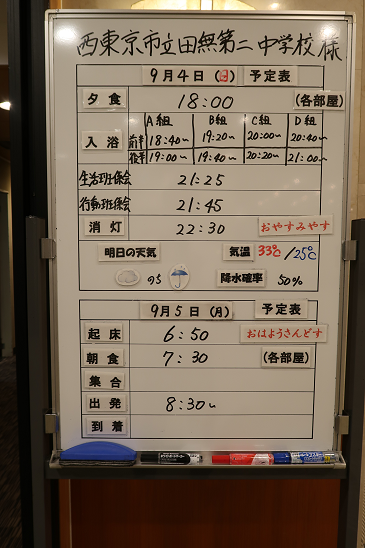 西東京市立田無第二中学校 様
9月4日（日） 予定表
夕食 18:00 (各部屋)
A組 B組 C組 D組
入浴 前半 18:40〜 19:20〜 20:00〜 20:40〜
後半 19:00〜 19:40〜 20:20〜 21:00〜
生活班長会 21:25
行動班長会 21:45
消灯 22:30 おやすみやす
明日の天気 気温 33℃/25℃
のち 降水確率 50%
9月5日（月） 予定表
起床 6:50 おはようさんどす
朝食 7:30 (各部屋)
集合
出発 8:30〜
到着